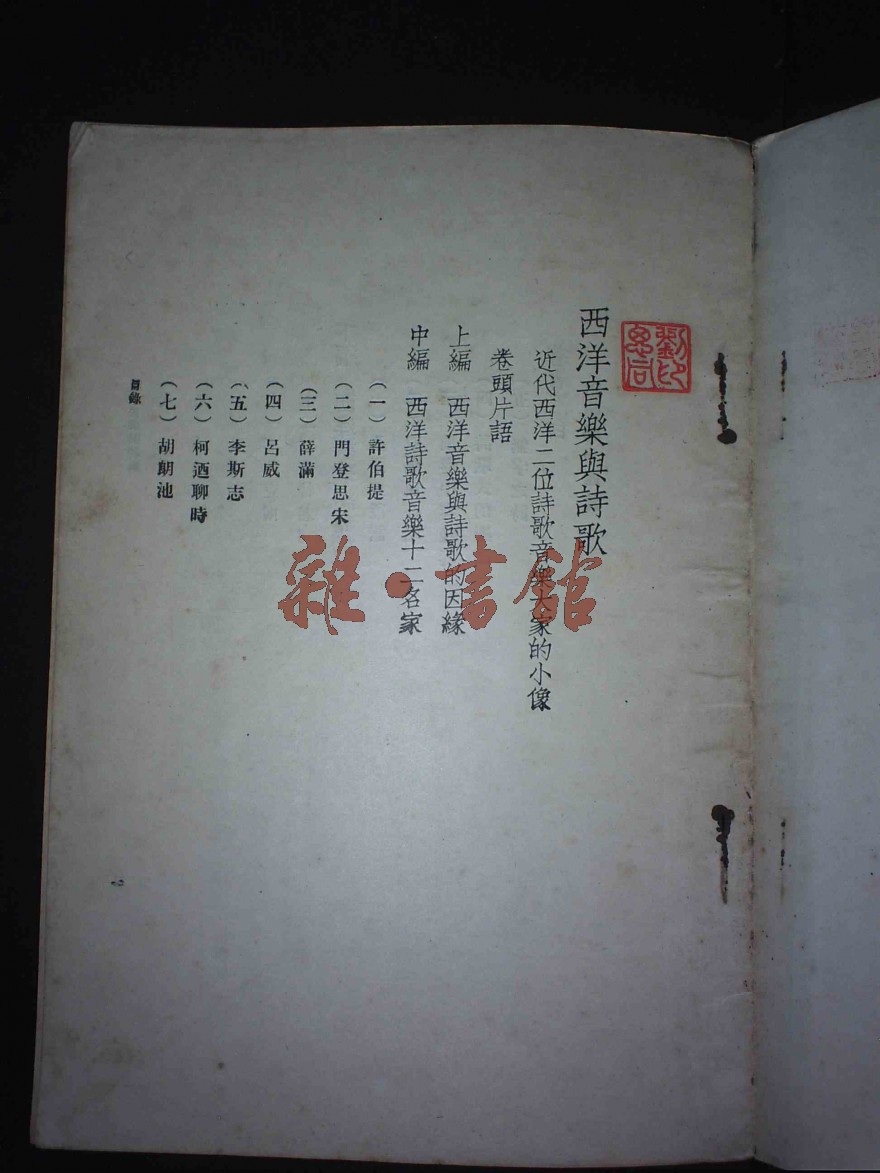 西洋音樂與詩歌
近代西洋二位詩歌音樂大家的小像
卷頭片語
上編　西洋音樂與詩歌的因緣
中編　西洋詩歌音樂十二名家
（一）許伯提
（二）門登思宋
（三）薛滿
（四）呂威
（五）李斯志
（六）柯迺聊時
（七）胡朗池
目錄
雜·書館